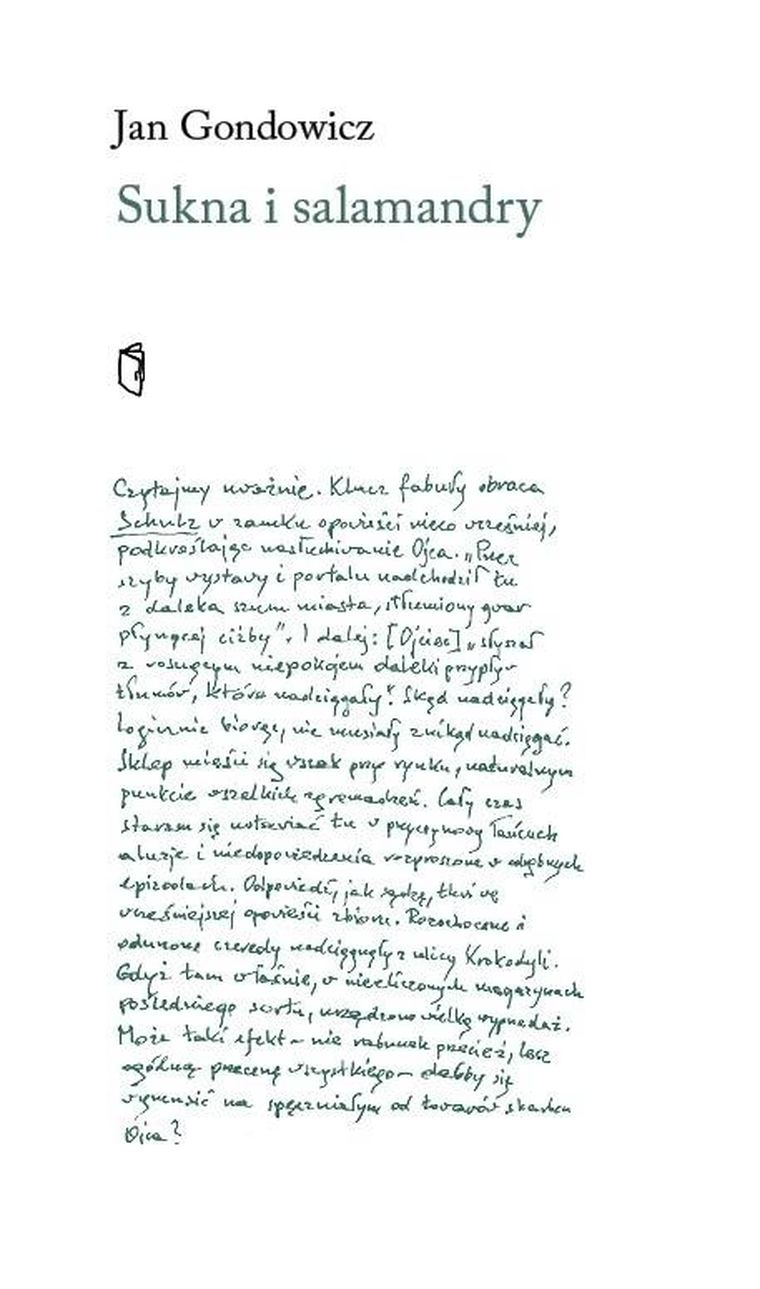 Jan Gondowicz
Sukna i salamandry
Czytajmy uważnie. Klucz fabuły obraca
Schulz w zamku opowieści nieco wcześniej,
podkreślając nasłuchiwanie Ojca. „Przez
szyby wystawy i portalu nadchodził tu
z daleka szum miasta, stłumiony gwar
płynącej ciżby”. I dalej: [Ojciec] „słyszał
z rosnącym niepokojem daleki przypływ
tłumów, które nadciągały”. Skąd nadciągały?
Logicznie biorąc, nie musiały znikąd nadciągać.
Sklep mieści się wszak przy rynku, naturalnym
punkcie wszelkich zgromadzeń. Cały czas
staram się ustawiać tu w przyczynowy łańcuch
aluzje i niedopowiedzenia rozproszone w odrębnych
epizodach. Odpowiedź, jak sądzę, tkwi we
wcześniejszej opowieści zbioru. Rozochocone i
odurzone czeredy nadciągnęły z ulicy Krokodyli.
Gdyż tam właśnie, w niezliczonych magazynach
pośledniego sortu, urządzono wielką wyprzedaż.
Może taki efekt – nie rabunek przecież, lecz
ogólną przecenę wszystkiego – dałby się
wymusić na spęczniałym od towarów skarbcu
Ojca?